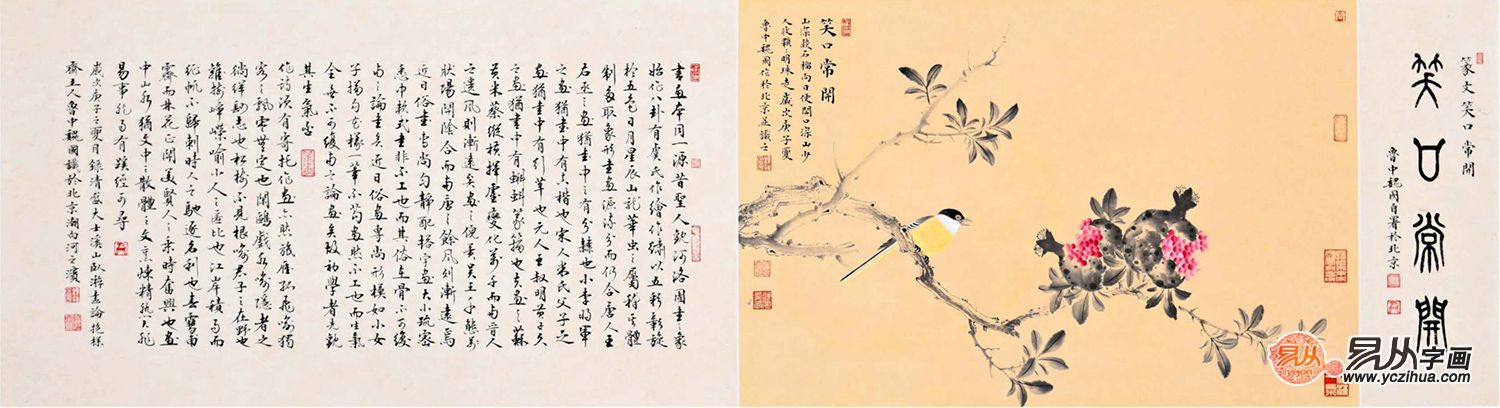 篆文笑口常開
笑口常開
魯中魏國自署於北京
笑口常開
山深熟石榴向日便開口深山少
人收顆顆明珠走歲次庚子夏
魯中魏國信於北京並識之
書畫本同一源昔聖人觀河洛圖書之象
始作八卦有虞氏作繪作繡以五彩彰施
於五色日月星辰山龍華蟲之屬稱其體
制多取象形書畫源流分而仍合唐人王
右丞之畫猶書中之有分隸也小李將軍
之畫猶書中有真楷也宋人米氏父子之
畫猶書中有行草也元人王叔明黃子久
之畫猶書中有蝌蚪篆籀也夫書之蘇
黃米蔡縱橫揮灑變化萬千而兩晉人
之遺風則漸遠矣畫之倪黃吳王千態萬
狀陽開陰合而兩唐之餘風則漸遠焉
近日俗書專尚勻靜配搭字畫大小疏密
悉中款式書非不工也而其俗在骨不可復
與之論書矣近日俗畫專尚形模如小女
子描勾花樣一筆不苟畫非不工也而生氣
全無不可復與之論畫矣故初學者先觀
其生氣
作詩須有寄托作畫亦然旅雁孤飛喻獨
客之飄零無定也閑鷗戲水喻隱者之
徜徉肆志也松樹不見根喻君子之在野也
雜樹崢嶸喻小人之匿比也江岸積雨而
征帆不歸刺時人之馳逐名利也春雪甫
霽而林花正開美賢人之乘時奮興也畫
中山水猶文中之散體之文烹煉精熟大非
易事然尚有蹊徑可尋
歲次庚子之夏月錄清盛大士溪山臥游畫論
齋主人魯中魏國識於北京潮白河之濱
易从
yejon
易从字画
www.yczihua.com